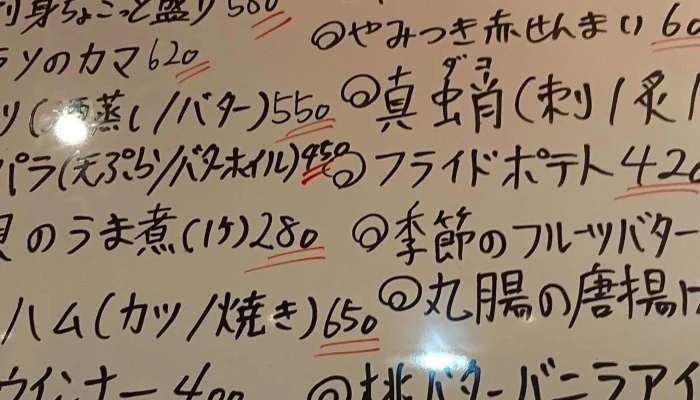 身ちょこっと盛り580
ソのカマ620
ツ(酒蒸し/バター)550
パラ(天ぷら/バターホイル)950
のうま煮(1ケ)280
ハム(カツ/焼き)650
ウインナー400
◎やみつき赤せんまい60
ダコ
◎真蛸(刺/炙/
◎フライドポテト420
◎季節のフルーツバター
◎丸腸の唐揚げ
◎桃バターバニラアイ